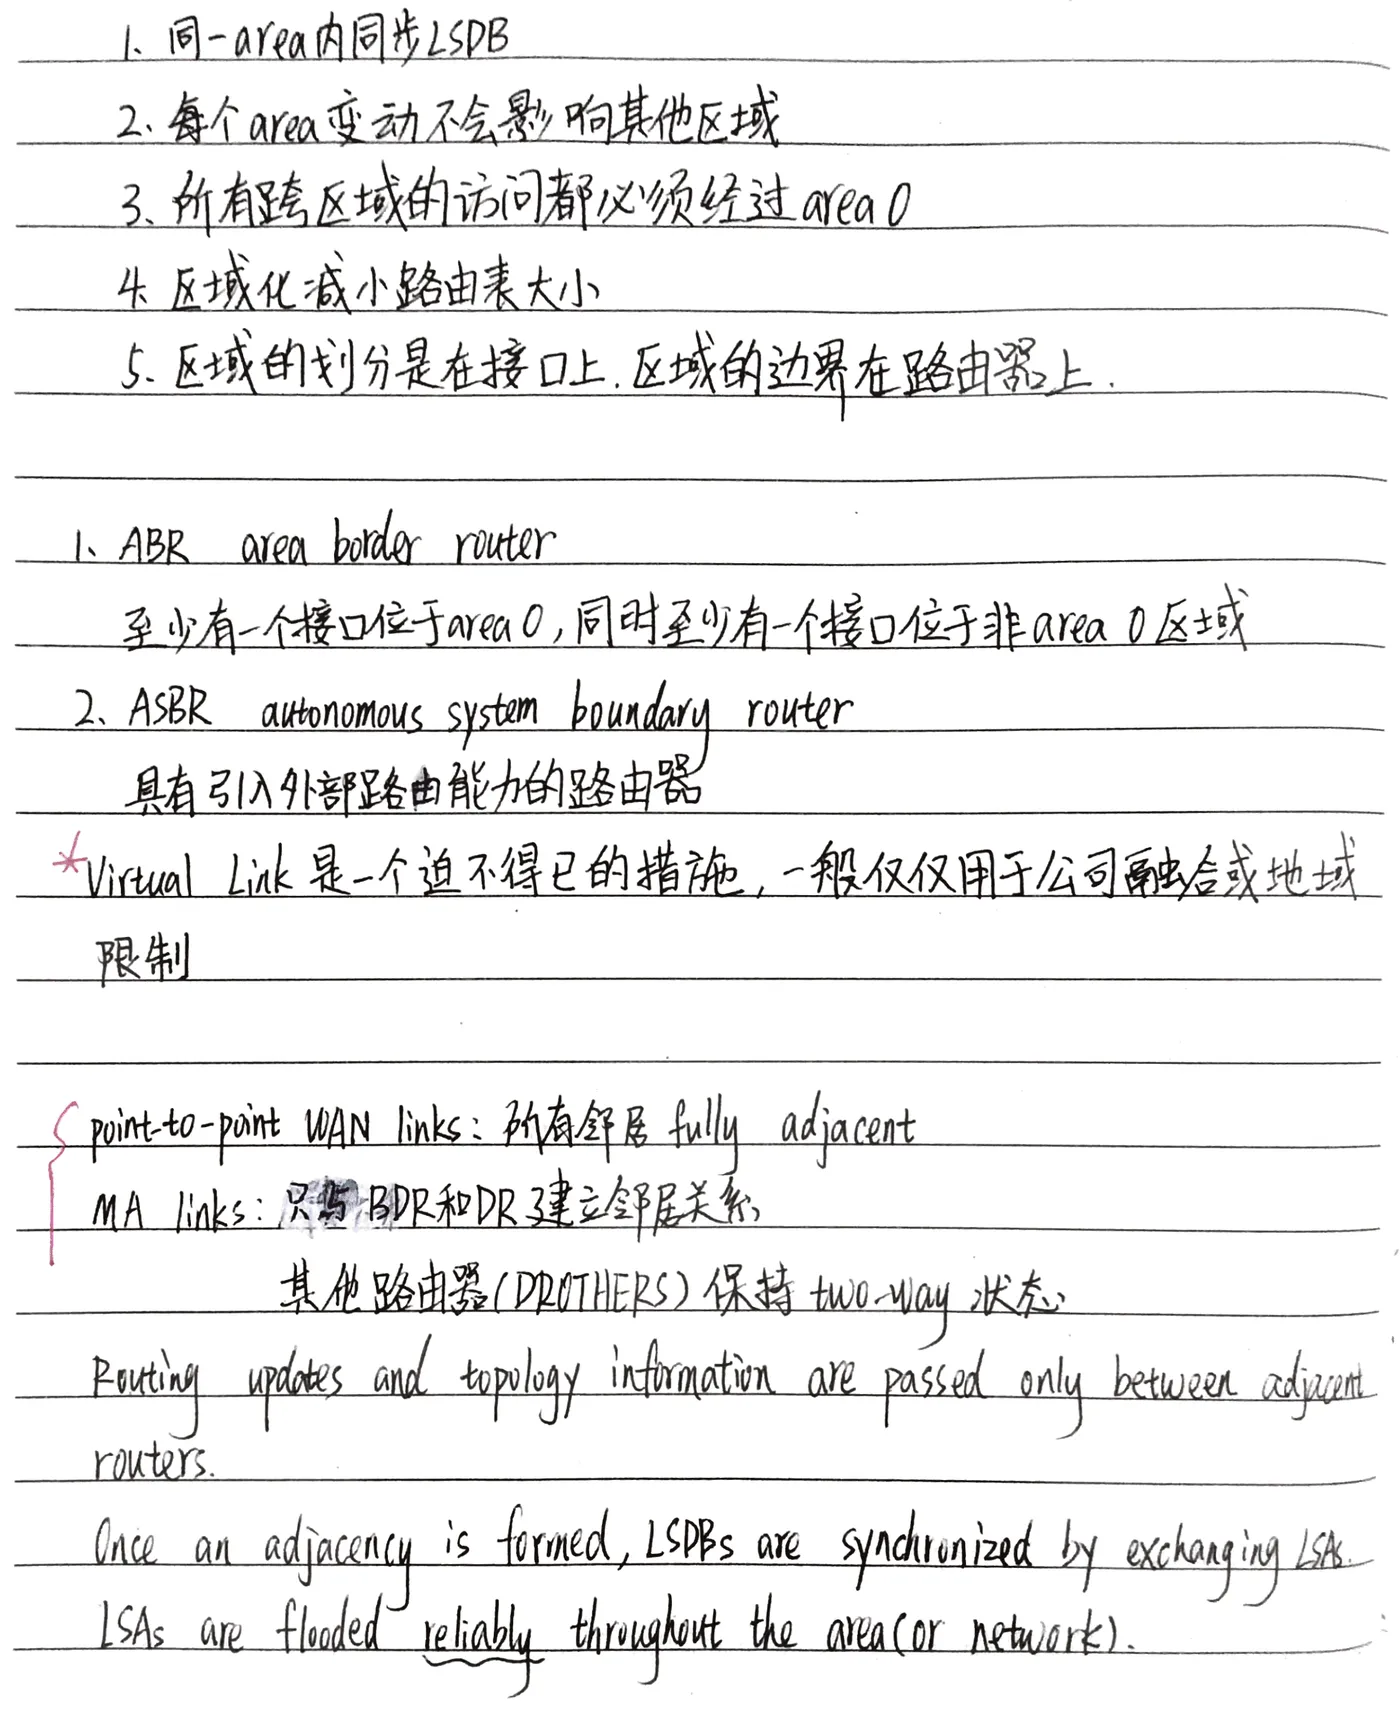 1、同一area内同步LSDB
2、每个area变动不会影响其他区域
3、所有跨区域的访问都必须经过area 0
4、区域化减小路由表大小
5、区域的划分是在接口上.区域的边界在路由器上.
1、ABR area border router
至少有一个接口位于area 0,同时至少有一个接口位于非area 0区域
2、ASBR autonomous system boundary router
具有引入外部路由能力的路由器
*Virtual Link是一个迫不得已的措施,一般仅仅用于公司融合或地域
限制
point-to-point WAN links:所有邻居fully adjacent
MA links:只与BDR和DR建立邻居关系
其他路由器(DROTHERS)保持two-way状态
Routing updates and topology information are passed only between adjacent
routers.
Once an adjacency is formed, LSDBs are synchronized by exchanging LSAs.
LSAs are flooded reliably throughout the area(or network).